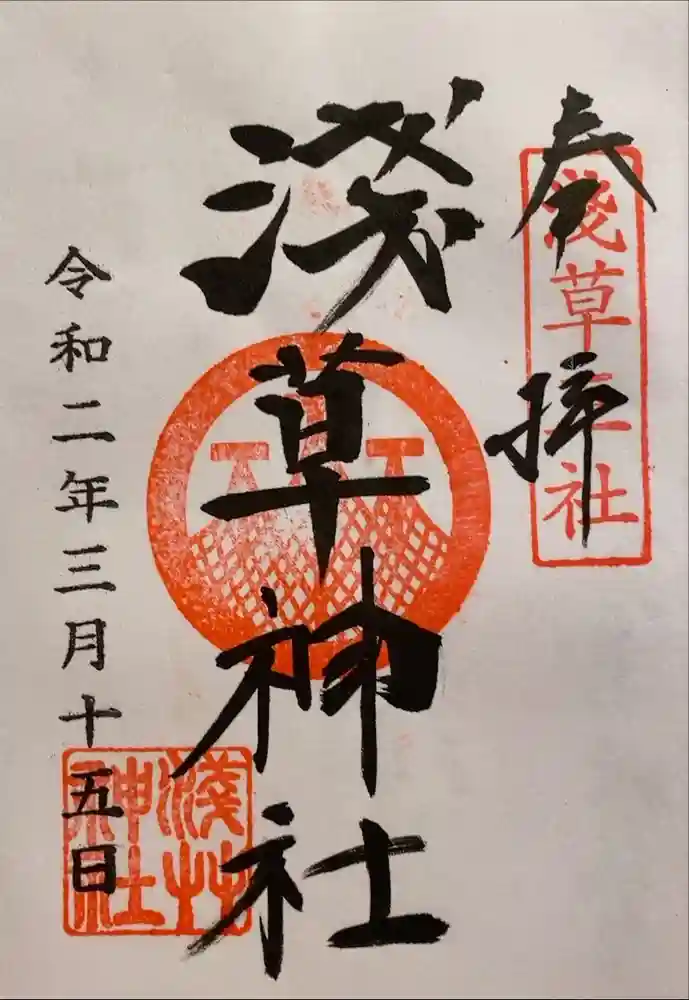 奉拝
淺草三社
淺草神社
令和二年三月十五日
淺艸神社